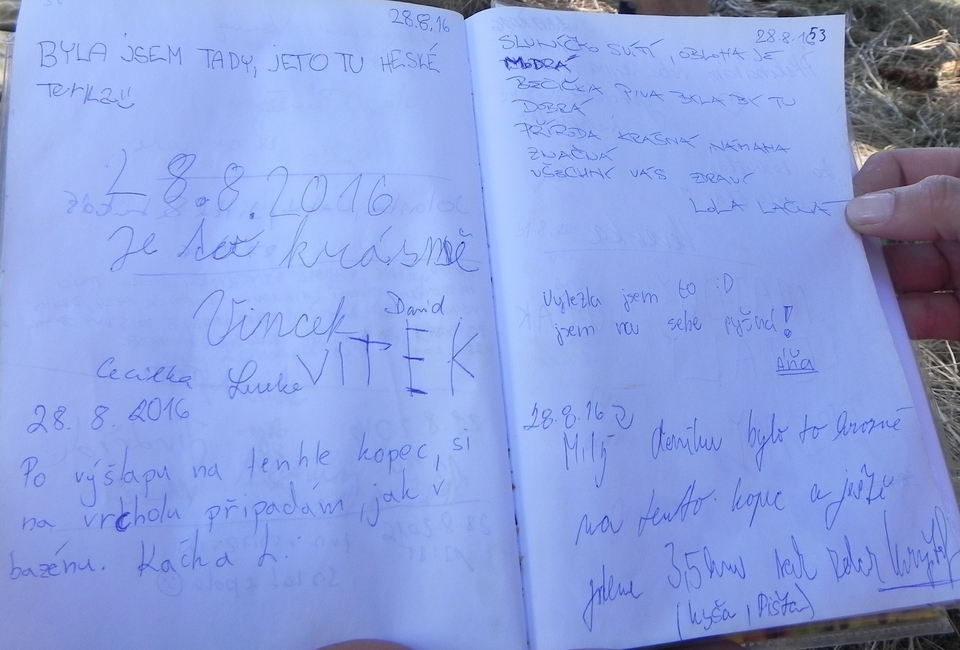 28.8.16
BYLA JSEM TADY, JETO TU HESKÉ
Terka
28.8.2016
Je krásně
Vincek David
VÍTEK
Cecilka Lucke
28. 8. 2016
Po výšlapu na tenhle kopec, si
na vrcholu připadám, jak v
bazénu. Káčha L.
28.8.16 53
SLUNÍČKO SVÍTÍ, OBLOHA JE
MODRÁ
BEČIČKA PIVA BYLA BY TU
DOBRÁ
PŘÍRODA KRÁSNÁ NÁMAHA
ZNAČNÁ
VŠECHNY VÁS ZDRAVÍ
LOLA LAČNÁ
Vylezla jsem to :D
jsem na sebe pyšná!
Áňa
28.8.16
Milý deníku bylo to hrozné
na tento kopec a ještě
jdeme 3,5km tak zdar Kryštof
(Kyša, Píšťa)